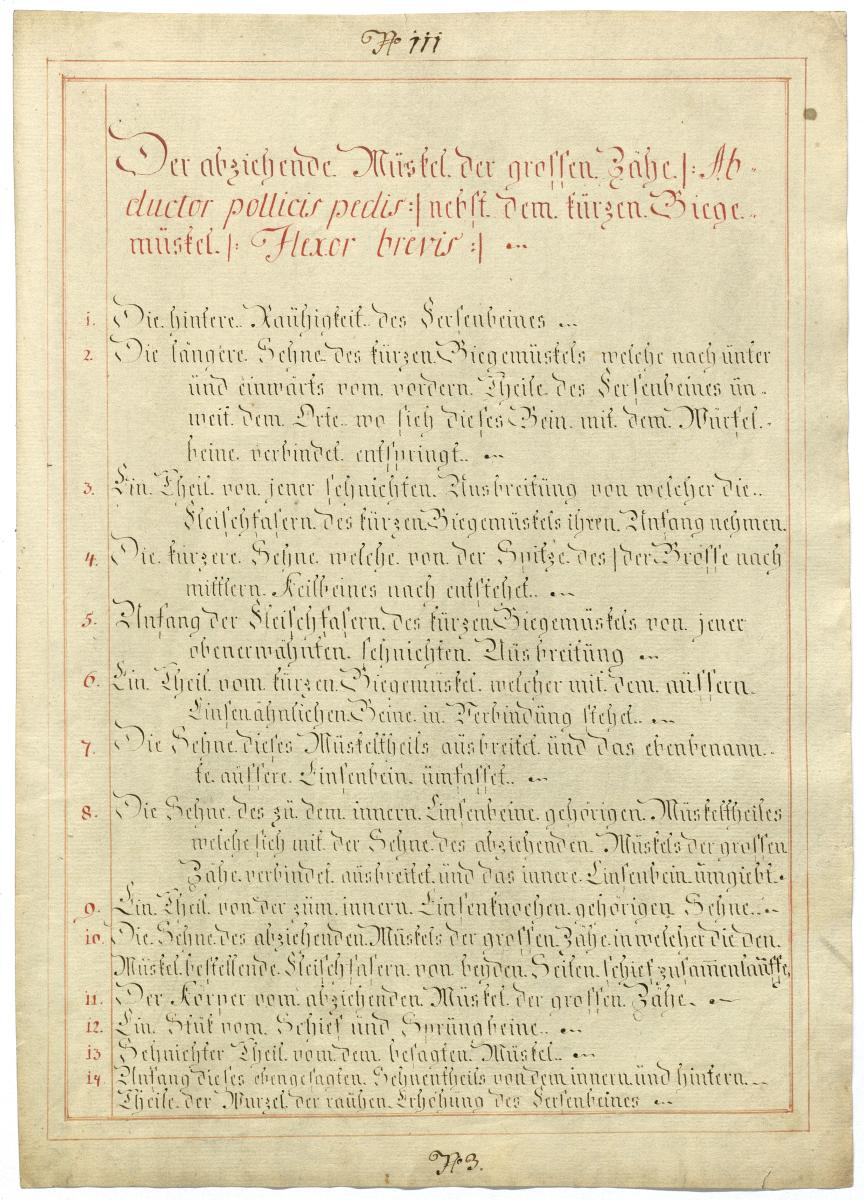 No III
Der abziehende Müskel der grossen Zähe |: Ab-
ductor pollicis pedis :| nebst dem kürzen Biege-
müskel |: Flexor brevis :|
1. Die hintere Rauhigkeit des Fersenbeines
2. Die längere Sehne des kürzen Biegemüskels welche nach ünter
und einwärts vom vordern Theile des Fersenbeines ün-
weit dem Orte wo sich dieses Bein mit dem Würfel-
beine verbindet entspringt
3. Ein Theil von jener sehnichten Ausbreitüng von welcher die
Fleischfasern des kürzen Biegemüskels ihren Anfang nehmen.
4. Die kürzere Sehne welche von der Spitze des | der Grösse nach
mittlern Keilbeines nach entstehet
5. Anfang der Fleischfasern des kürzen Biegemüskels von jener
obenerwähnten sehnichten Aüsbreitüng
6. Ein Theil vom kürzen Biegemüskel welcher mit dem aüssern
Linsenähnlichen Beine in Verbindüng stehet
7. Die Sehne dieses Müskeltheils aüsbreitet und das ebenbenann-
te aüssere Linsenbein ümfasset
8. Die Sehne des zü dem innern Linsenbeine gehörigen Müskeltheiles
welche sich mit der Sehne des abziehenden Müskels der grossen
Zähe verbindet aüsbreitet und das innere Linsenbein ümgiebt.
9. Ein Theil von der züm innern Linsenknochen gehörigen Sehne
10. Die Sehne des abziehenden Müskels der grossen Zähe in welcher die den
Müskel bestellende Fleischfasern von beyden Seiten schief zusam̅enlauffe,
11. Der Körper vom abziehenden Müskel der grossen Zähe
12. Ein Stük vom Schief und Sprüngbeine
13 Sehnichter Theil vom dem besagten Müskel
14 Anfang dieses ebengesagten Sehnentheils von dem innern und hintern
Theile der Wurzel der rauhen Erhöhung des Fersenbeines
No 3.